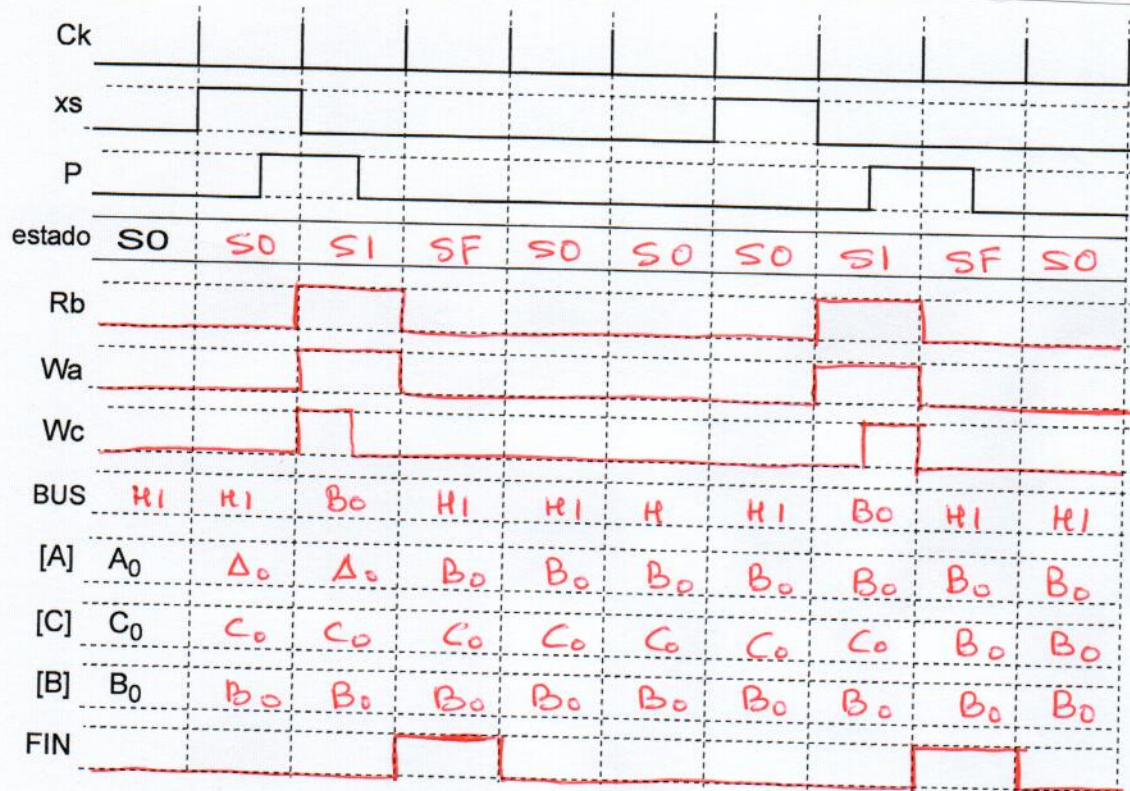 Ck
xs
P
estado S0 S0 S1 SF S0 S0 S0 S1 SF S0
Rb
Wa
Wc
BUS HI HI B0 HI HI H HI B0 HI HI
[A] A0 A0 A0 B0 B0 B0 B0 B0 B0 B0
[C] C0 C0 C0 C0 C0 C0 C0 C0 B0 B0
[B] B0 B0 B0 B0 B0 B0 B0 B0 B0 B0
FIN